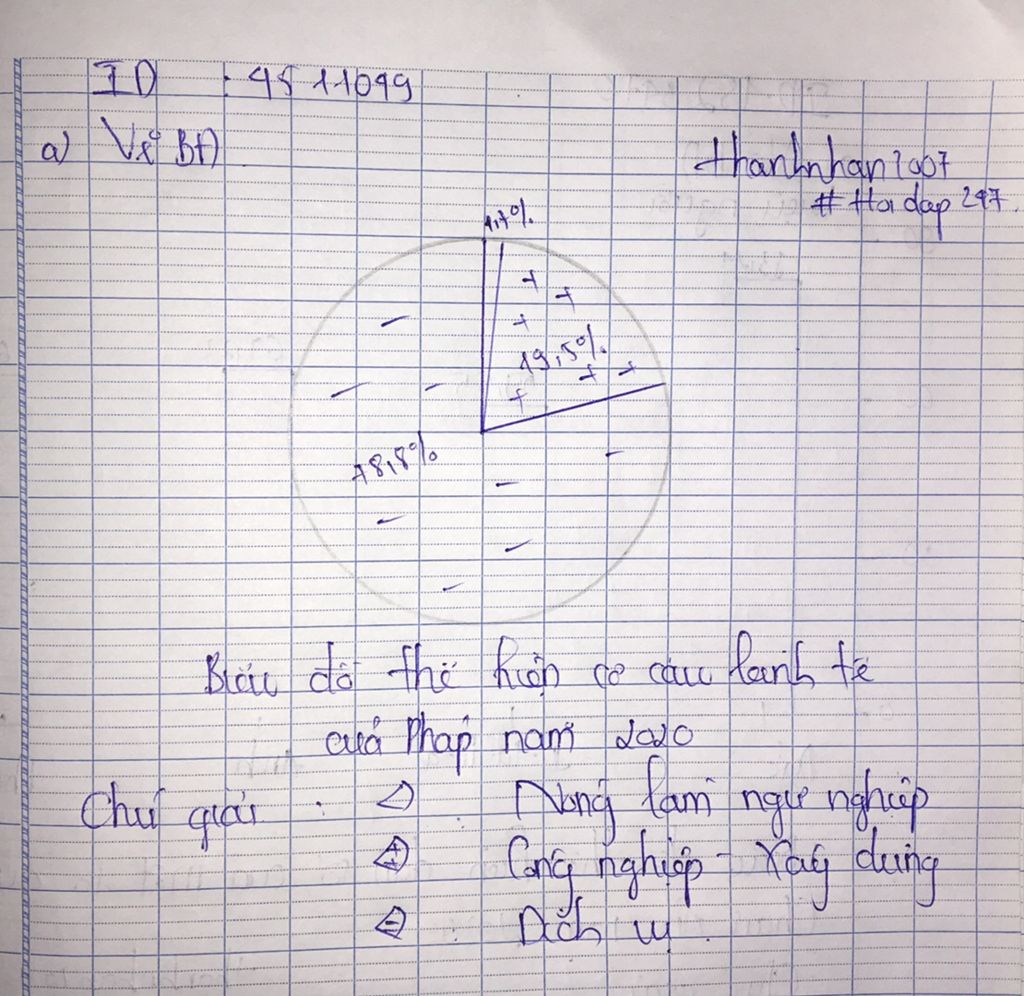 ID : 4511099
a) Vẽ BĐ
thanhnhan2007
# Hoidap247.
1,7%
19,5%
78,8%
Biểu đồ thể hiện cơ cấu kinh tế
của Pháp năm 2020
Chú giải :
Nông lâm ngư nghiệp
Công nghiệp - Xây dựng
Dịch vụ.